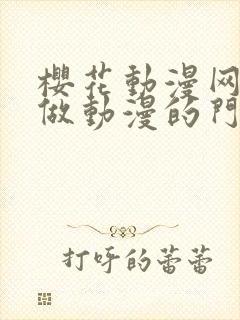 櫻花動漫网
做動漫的門
打呼的蕾蕾